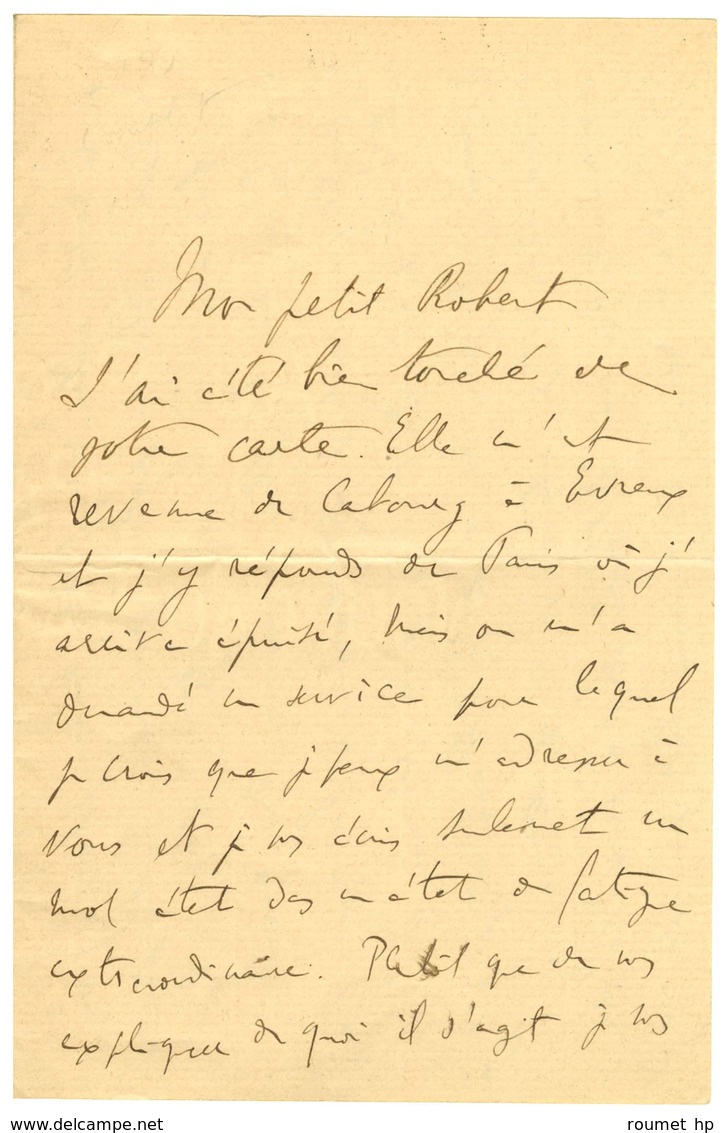 Mon petit Robert
J'ai été bien touché de
votre carte. Elle m'est
revenue de Cabourg à Evreux
et j'y réponds de Paris où j'
arrive épuisé, mais on m'a
demandé un service pour lequel
je crois que je peux m'adresser à
vous et je vs écris seulement un
mot étant dans un état de fatigue
extraordinaire. Plutôt que de vs
expliquer de quoi il s'agit je vs
roumet hp